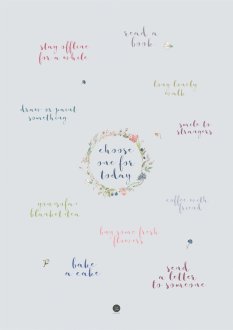 read a
book
stay offline
for a while
long lonely
walk
draw or paint
something
smile to
strangers
choose
one for
today
coffee with
friend
you sofa
blanket tea
buy some fresh
flowers
bake
a cake
send
a letter
to someone